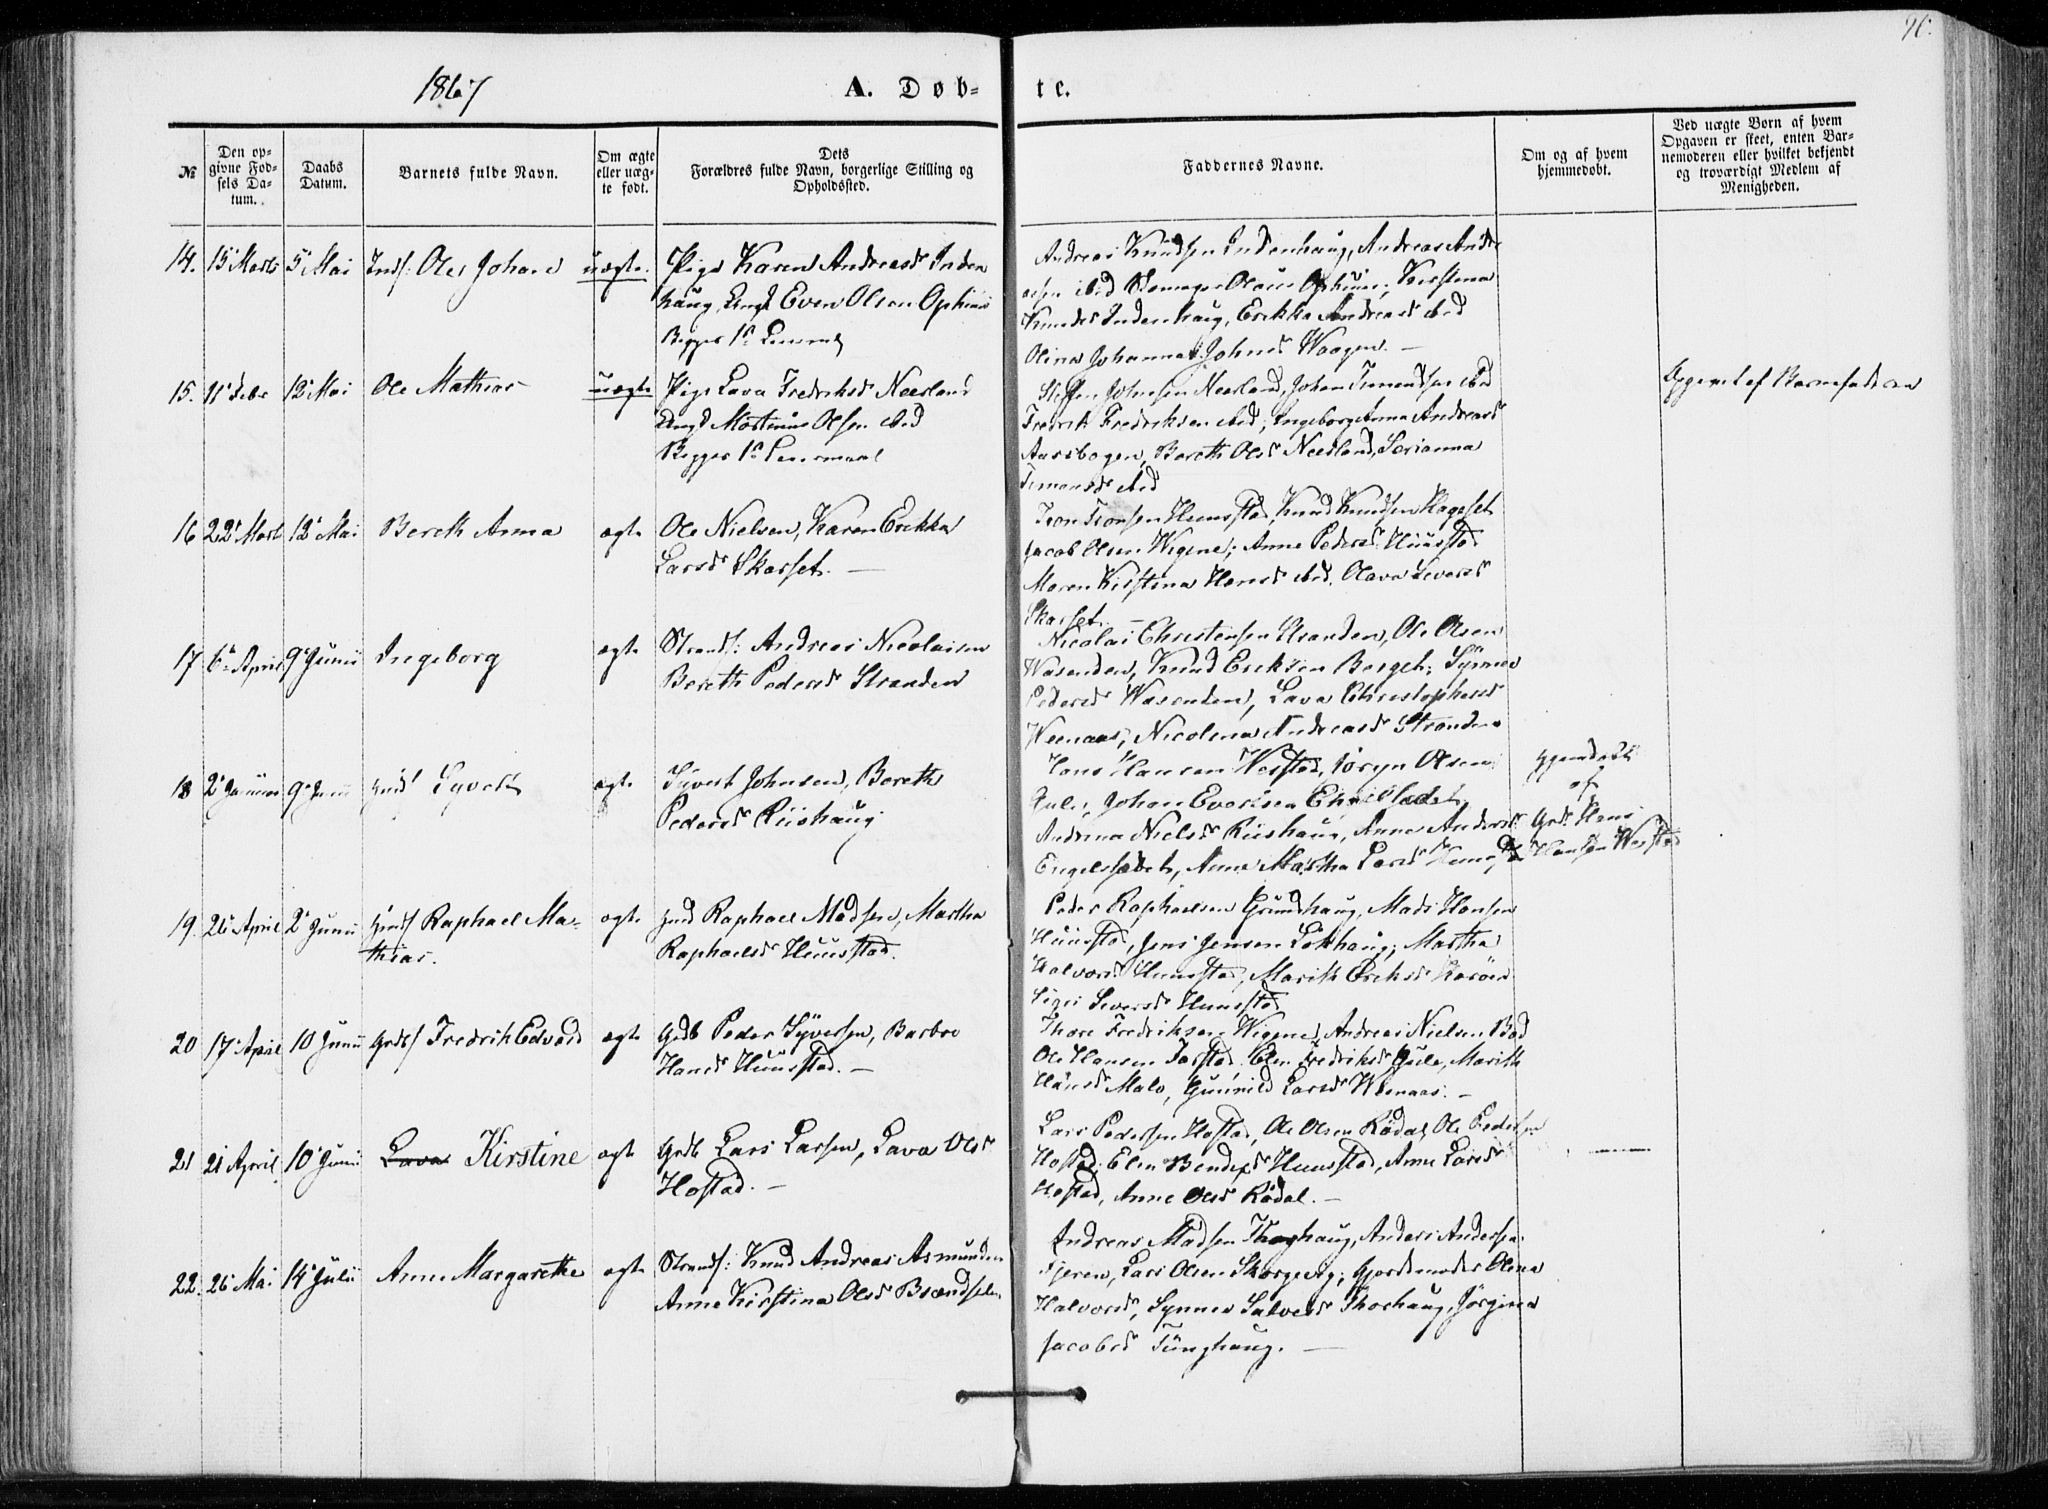 96.
1867
A. Døb-
te.
№
Den op-
givne Fød-
sels Da-
tum.
Daabs
Datum.
Barnets fulde Navn.
Om ægte
eller uæg-
te født.
Dets
Forældres fulde Navn, borgerlige Stilling og
Opholdssted.
Faddernes Navne.
Om og af hvem
hjemmedøbt.
Ved uægte Børn af hvem
Opgaven er skeet, enten Bar-
nemoderen eller hvilket bekjendt
og troværdigt Medlem af
Menigheden.
14. 15 Marts 5 Mai Ole Johan uægte
Pige Karen Andreasd Inden
haug, Ungk Even Olsen Ophuus
Begges 1ste
Andreas Knudsen Indenhaug, Andreas Andre
asen ibid Ophuus, Kirstina
Knudsd Indenhaug, Erikka Andreasd ibid
Olina Johanna Johnsd Waagen. —
15. 12 Mai Ole Mathias uægte
Pige Lava Fredriksd Neerland
Ungk Martinus Olsen ibid
Begges 1ste Leiermaal
Steffen Johnsen Neerland, Johan ibid
Fredrik Fredriksen ibid; Ingeborg Anna Andreasd
Aarsbogen, Bereth Olsd Neerland, Serianna
ibid
Opgivet af Barnefaderen
16 22 Marts 12 Mai Bereth Anna ægte
Ole Nielsen, Karen Erikka
Larsd Skarset. —
Iver Iversen Huusstad, Knud Knudsen Hageset
Jacob Olsen Wigene; Anne Pedersd Huusstad
Maren Kirstina Hansd ibid, Olava Siversd
Skarset. —
17 6 April 9 Junii Ingeborg ægte
Strands: Andreas Nicolaisen
Bereth Pedersd Stranden
Nicolai Christensen Stranden, Ole Olsen
Wasenden, Knud Eriksen Berget; Synnev
Pedersd Wasenden, Lava Christophersd
Weenaas, Nicolina Andreasd Stranden
18 2 9 Junii Syvert ægte
Syvert Johnsen, Bereth
Pedersd Riishaug
Hans Hansen Westad, Jørgen Olsen
Gule, Johan Evertsen
Andrina Nielsd Riishaug, Anne Andersd
Engelsædet, Anne Martha Larsd
hjemdøbt
af
Grd. Hans
Hansen Westad
19. 26 April 2 Junii Raphael Ma-
thias. ægte
Raphael Madsen, Martha
Raphaelsd Huusstad.
Peder Raphaelsen Grundhaug, Mads Hansen
Huusstad, Jens Jensen Løkhaug; Martha
Halvorsd Huusstad, Marith Eriksd
Siversd Huusstad
20 17 April 10 Junii Fredrik Edvard ægte
Grdb Peder Syversen, Barbro
Hansd Huusstad. —
Thore Fredriksen Wigene, Andreas Nielsen Bad
Ole Hansen Tarstad, Elen Fredriksd Gule, Marith
Hansd Malo, Gunnild Larsd Weenaas. —
21 21 April 10 Junii Lava Kirstine ægte
Grdb Lars Larsen, Lava Olsd
Hostad. —
Lars Pedersen Hostad, Ole Olsen Rødal, Ole Pedersen
Hostad; Elen Bendixd Huusstad, Anne Larsd
Hostad, Anne Olsd Rødal. —
22. 26 Mai 14 Julii Anne Margarethe ægte
Strands: Knud Andreas Asmundsen
Anne Kirstina Olsd
Andreas Madsen Thorhaug, Anders Andersen
Lars Olsen Skorgevig; Gjordemoder Olina
Halvorsd, Synnev Salvesd Thorhaug, Jørgina
Jacobsd Tunghaug. —